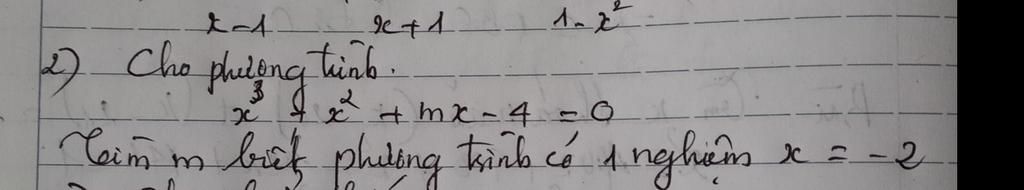 x-1 x+1 1-x²
2) Cho phương trình.
x³ + x² + mx - 4 = 0
Tìm m biết phương trình có 1 nghiệm x = -2